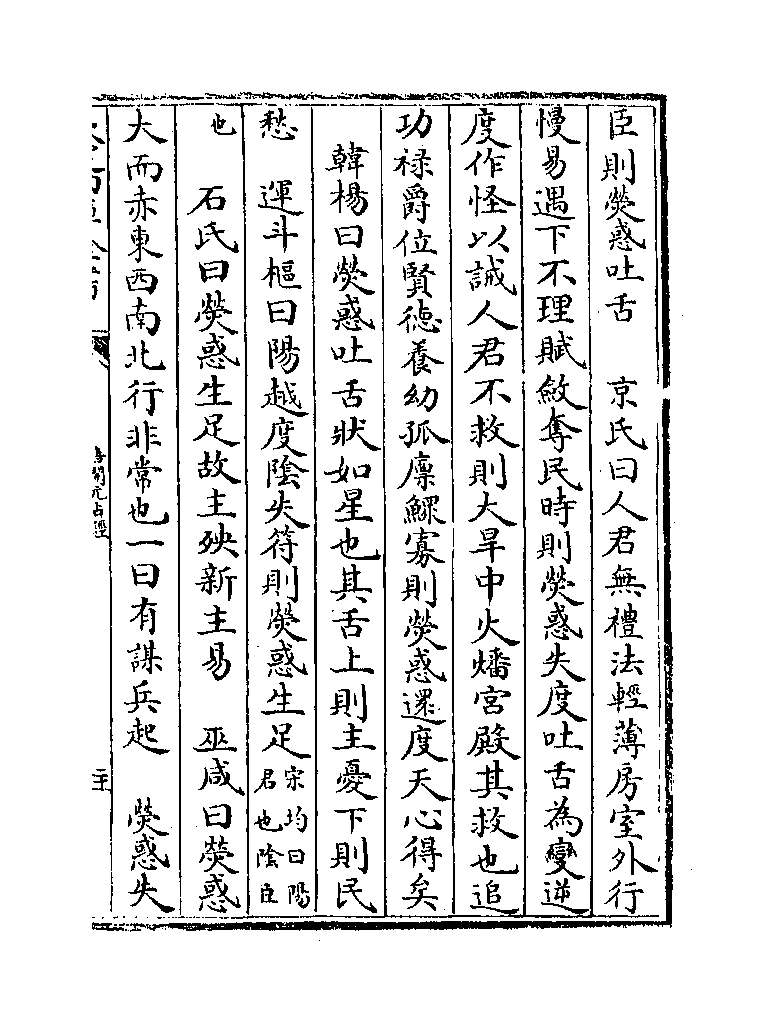 臣則熒惑吐舌　京氏曰人君無禮法輕薄房室外行
慢易遇下不理賦斂奪民時則熒惑失度吐舌為變逆
度作怪以誡人君不救則大旱中火燔宮殿其救也追
功祿爵位賢德養幼孤廩鰥寡則熒惑還度天心得矣
韓楊曰熒惑吐舌狀如星也其舌上則主憂下則民
愁　運斗樞曰陽越度陰失符則熒惑生足宋均曰陽君也陰臣
也　石氏曰熒惑生足故主殃新主易　巫咸曰熒惑
大而赤東西南北行非常也一曰有謀兵起　熒惑失
唐開元占經